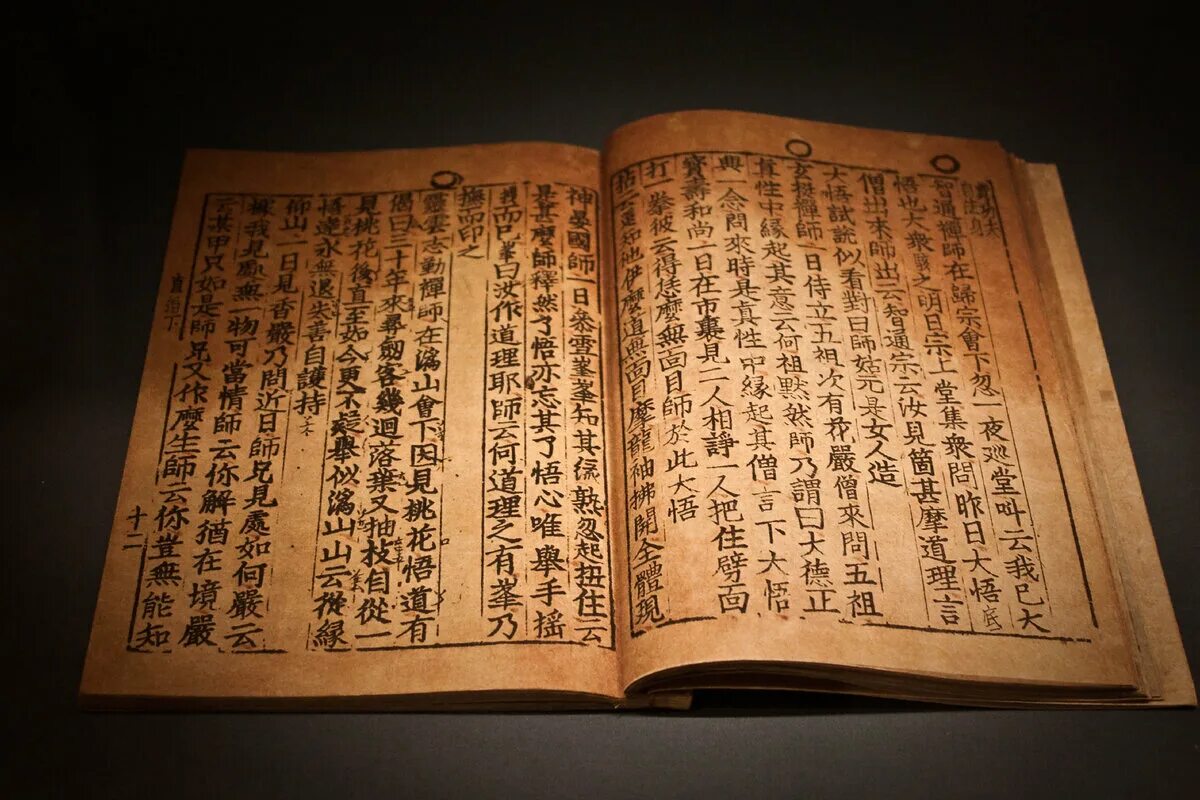 智通禪師在歸宗會下忽一夜巡堂呌云我已大
悟也大衆駭之明日宗上堂集衆問昨日大悟底
僧出來師出云智通宗云汝見箇甚麽道理言
大悟試說似看對曰師姑元是女人造
玄挺禪師一日侍立五祖次有花嚴僧來問五祖
眞性中縁起其意云何祖默然師乃謂曰大德正
興一念問來時是真性中縁起其僧言下大悟
寶壽和尚一日在市裏見二人相諍一人把住劈面
打一拳彼云得恁麽無面目師於此大悟
拈知他伊麽道無面目摩龍袖拂開全體現
神晏國師一日叅雪峯峯知其縁熟忽起扭住云
是甚麽師釋然了悟亦忘其了悟心唯舉手搖
曳而已峯曰汝作道理耶師云何道理之有峯乃
撫而印之
靈雲志勤禪師在潙山會下因見桃花悟道有
偈曰三十年來尋劒客幾迴落葉又抽枝自從一
見桃花後直至如今更不疑舉似潙山山云從縁
悟達永無退失善自護持
仰山一日見香嚴乃問近日師兄見處如何嚴云
據我見處無一物可當情師云你解猶在境嚴
云某甲只如是師兄又作麽生師云你豈無能知
直指下
十二